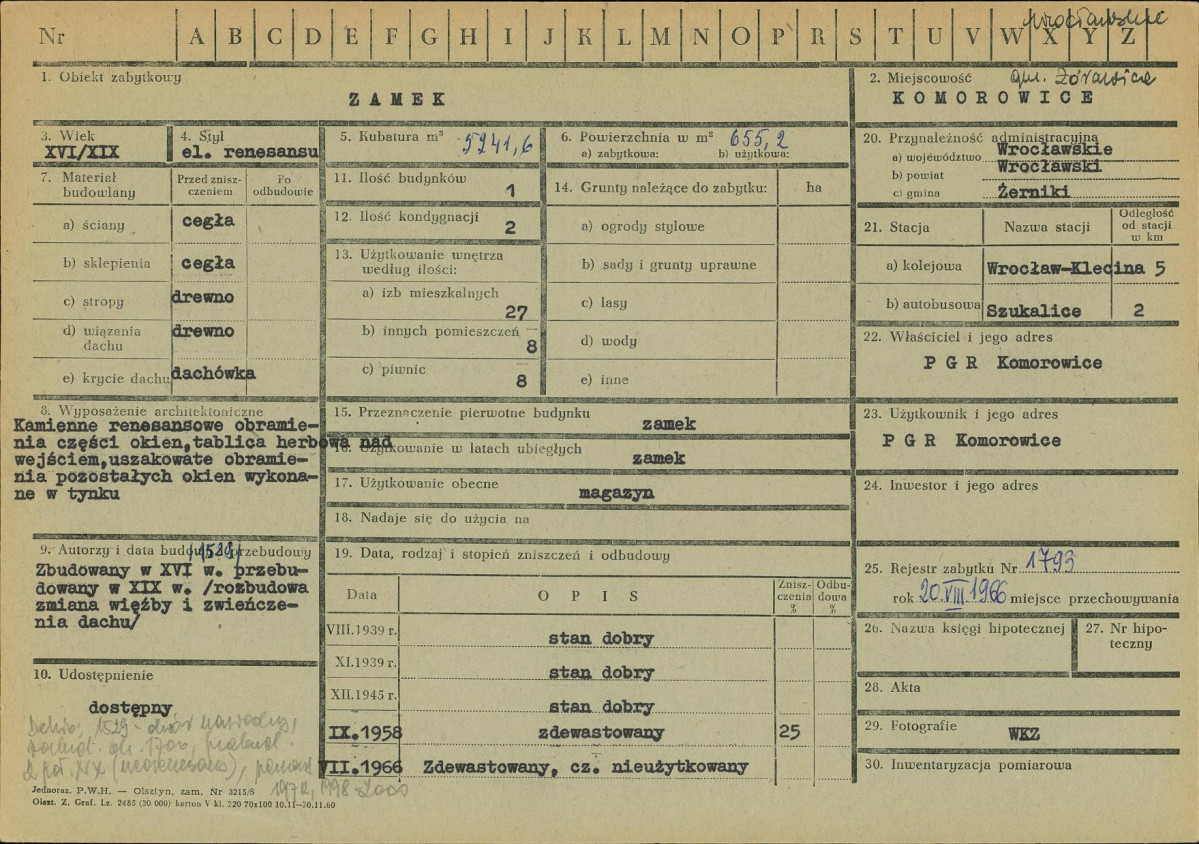 Nr A B C D E F G H I J K L M N O P R S T U V W X Y Z
wrocławskie
1. Obiekt zabytkowy
ZAMEK
2. Miejscowość gm. Żórawina
KOMOROWICE
3. Wiek
XVI/XIX
4. Styl
el. renesansu
5. Kubatura m³ 5241,6
6. Powierzchnia w m² 655,2
a) zabytkowa: b) użytkowa:
7. Materiał budowlany
Przed zniszczeniem
Po odbudowie
a) ściany cegła
b) sklepienia cegła
c) stropy drewno
d) wiązania dachu drewno
e) krycie dachu dachówka
8. Wyposażenie architektoniczne
Kamienne renesansowe obramie-
nia części okien,tablica herbowa nad
wejściem,uszakowate obramie-
nia pozostałych okien wykona-
ne w tynku
9. Autorzy i data budowy i przebudowy
/1529/
Zbudowany w XVI w. przebu-
dowany w XIX w. /rozbudowa
zmiana więźby i zwieńcze-
nia dachu/
10. Udostępnienie
dostępny
Dehio: 1529 - dwór nawodny,
przebud. ok. 1700, przebud.
2 poł. XIX (neorenesans),
1998-2000
Jednoraz. P.W.H. — Olsztyn, zam. Nr 3215/S
Olszt. Z. Graf. Lz. 2485 (30 000) karton V kl. 220 70x100 10.11—30.11.60
11. Ilość budynków 1
12. Ilość kondygnacji 2
13. Użytkowanie wnętrza
według ilości:
a) izb mieszkalnych 27
b) innych pomieszczeń 8
c) piwnic 8
14. Grunty należące do zabytku: ha
a) ogrody stylowe
b) sady i grunty uprawne
c) lasy
d) wody
e) inne
15. Przeznaczenie pierwotne budynku
zamek
16. Użytkowanie w latach ubiegłych
zamek
17. Użytkowanie obecne
magazyn
18. Nadaje się do użycia na
19. Data, rodzaj i stopień zniszczeń i odbudowy
Data OPIS Zniszczenia % Odbudowa %
VIII.1939 r. stan dobry
XI.1939 r. stan dobry
XII.1945 r. stan dobry
IX.1958 zdewastowany 25
VII.1966 Zdewastowany, cz. nieużytkowany
20. Przynależność administracyjna
a) województwo Wrocławskie
b) powiat Wrocławski
c) gmina Żerniki
21. Stacja Nazwa stacji Odległość od stacji w km
a) kolejowa Wrocław-Klecina 5
b) autobusowa Szukalice 2
22. Właściciel i jego adres
PGR Komorowice
23. Użytkownik i jego adres
PGR Komorowice
24. Inwestor i jego adres
25. Rejestr zabytku Nr 1793
rok 20.VIII.1966 miejsce przechowywania
26. Nazwa księgi hipotecznej
27. Nr hipo-
teczny
28. Akta
29. Fotografie WKZ
30. Inwentaryzacja pomiarowa